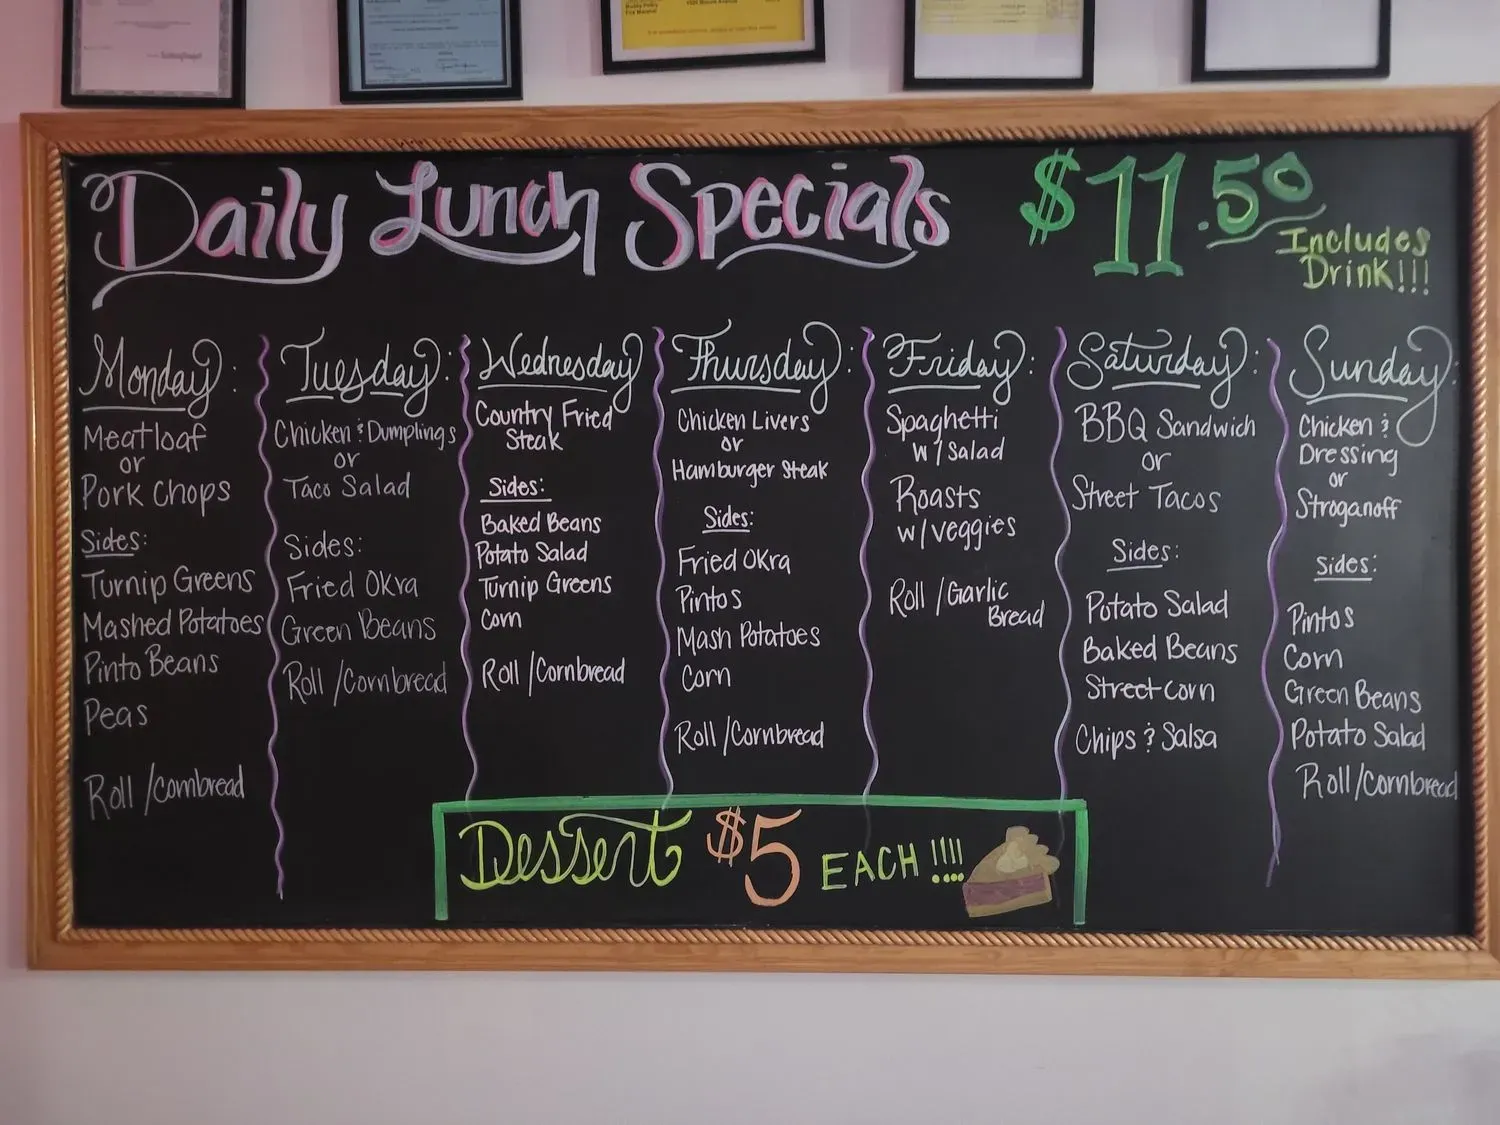 Daily Lunch Specials
$11.50
Includes
Drink!!!
Monday:
Meatloaf
or
Pork Chops
Sides:
Turnip Greens
Mashed Potatoes
Pinto Beans
Peas
Roll/Cornbread
Tuesday:
Chicken & Dumplings
or
Taco Salad
Sides:
Fried Okra
Green Beans
Roll/Cornbread
Wednesday
Country Fried
Steak
Sides:
Baked Beans
Potato Salad
Turnip Greens
Corn
Roll/Cornbread
Thursday:
Chicken Livers
or
Hamburger Steak
Sides:
Fried Okra
Pintos
Mash Potatoes
Corn
Roll/Cornbread
Friday:
Spaghetti
w/Salad
Roasts
w/veggies
Roll/Garlic
Bread
Saturday:
BBQ Sandwich
or
Street Tacos
Sides:
Potato Salad
Baked Beans
Street Corn
Chips & Salsa
Sunday:
Chicken &
Dressing
or
Stroganoff
Sides:
Pintos
Corn
Green Beans
Potato Salad
Roll/Cornbread
Dessert $5 EACH!!!!